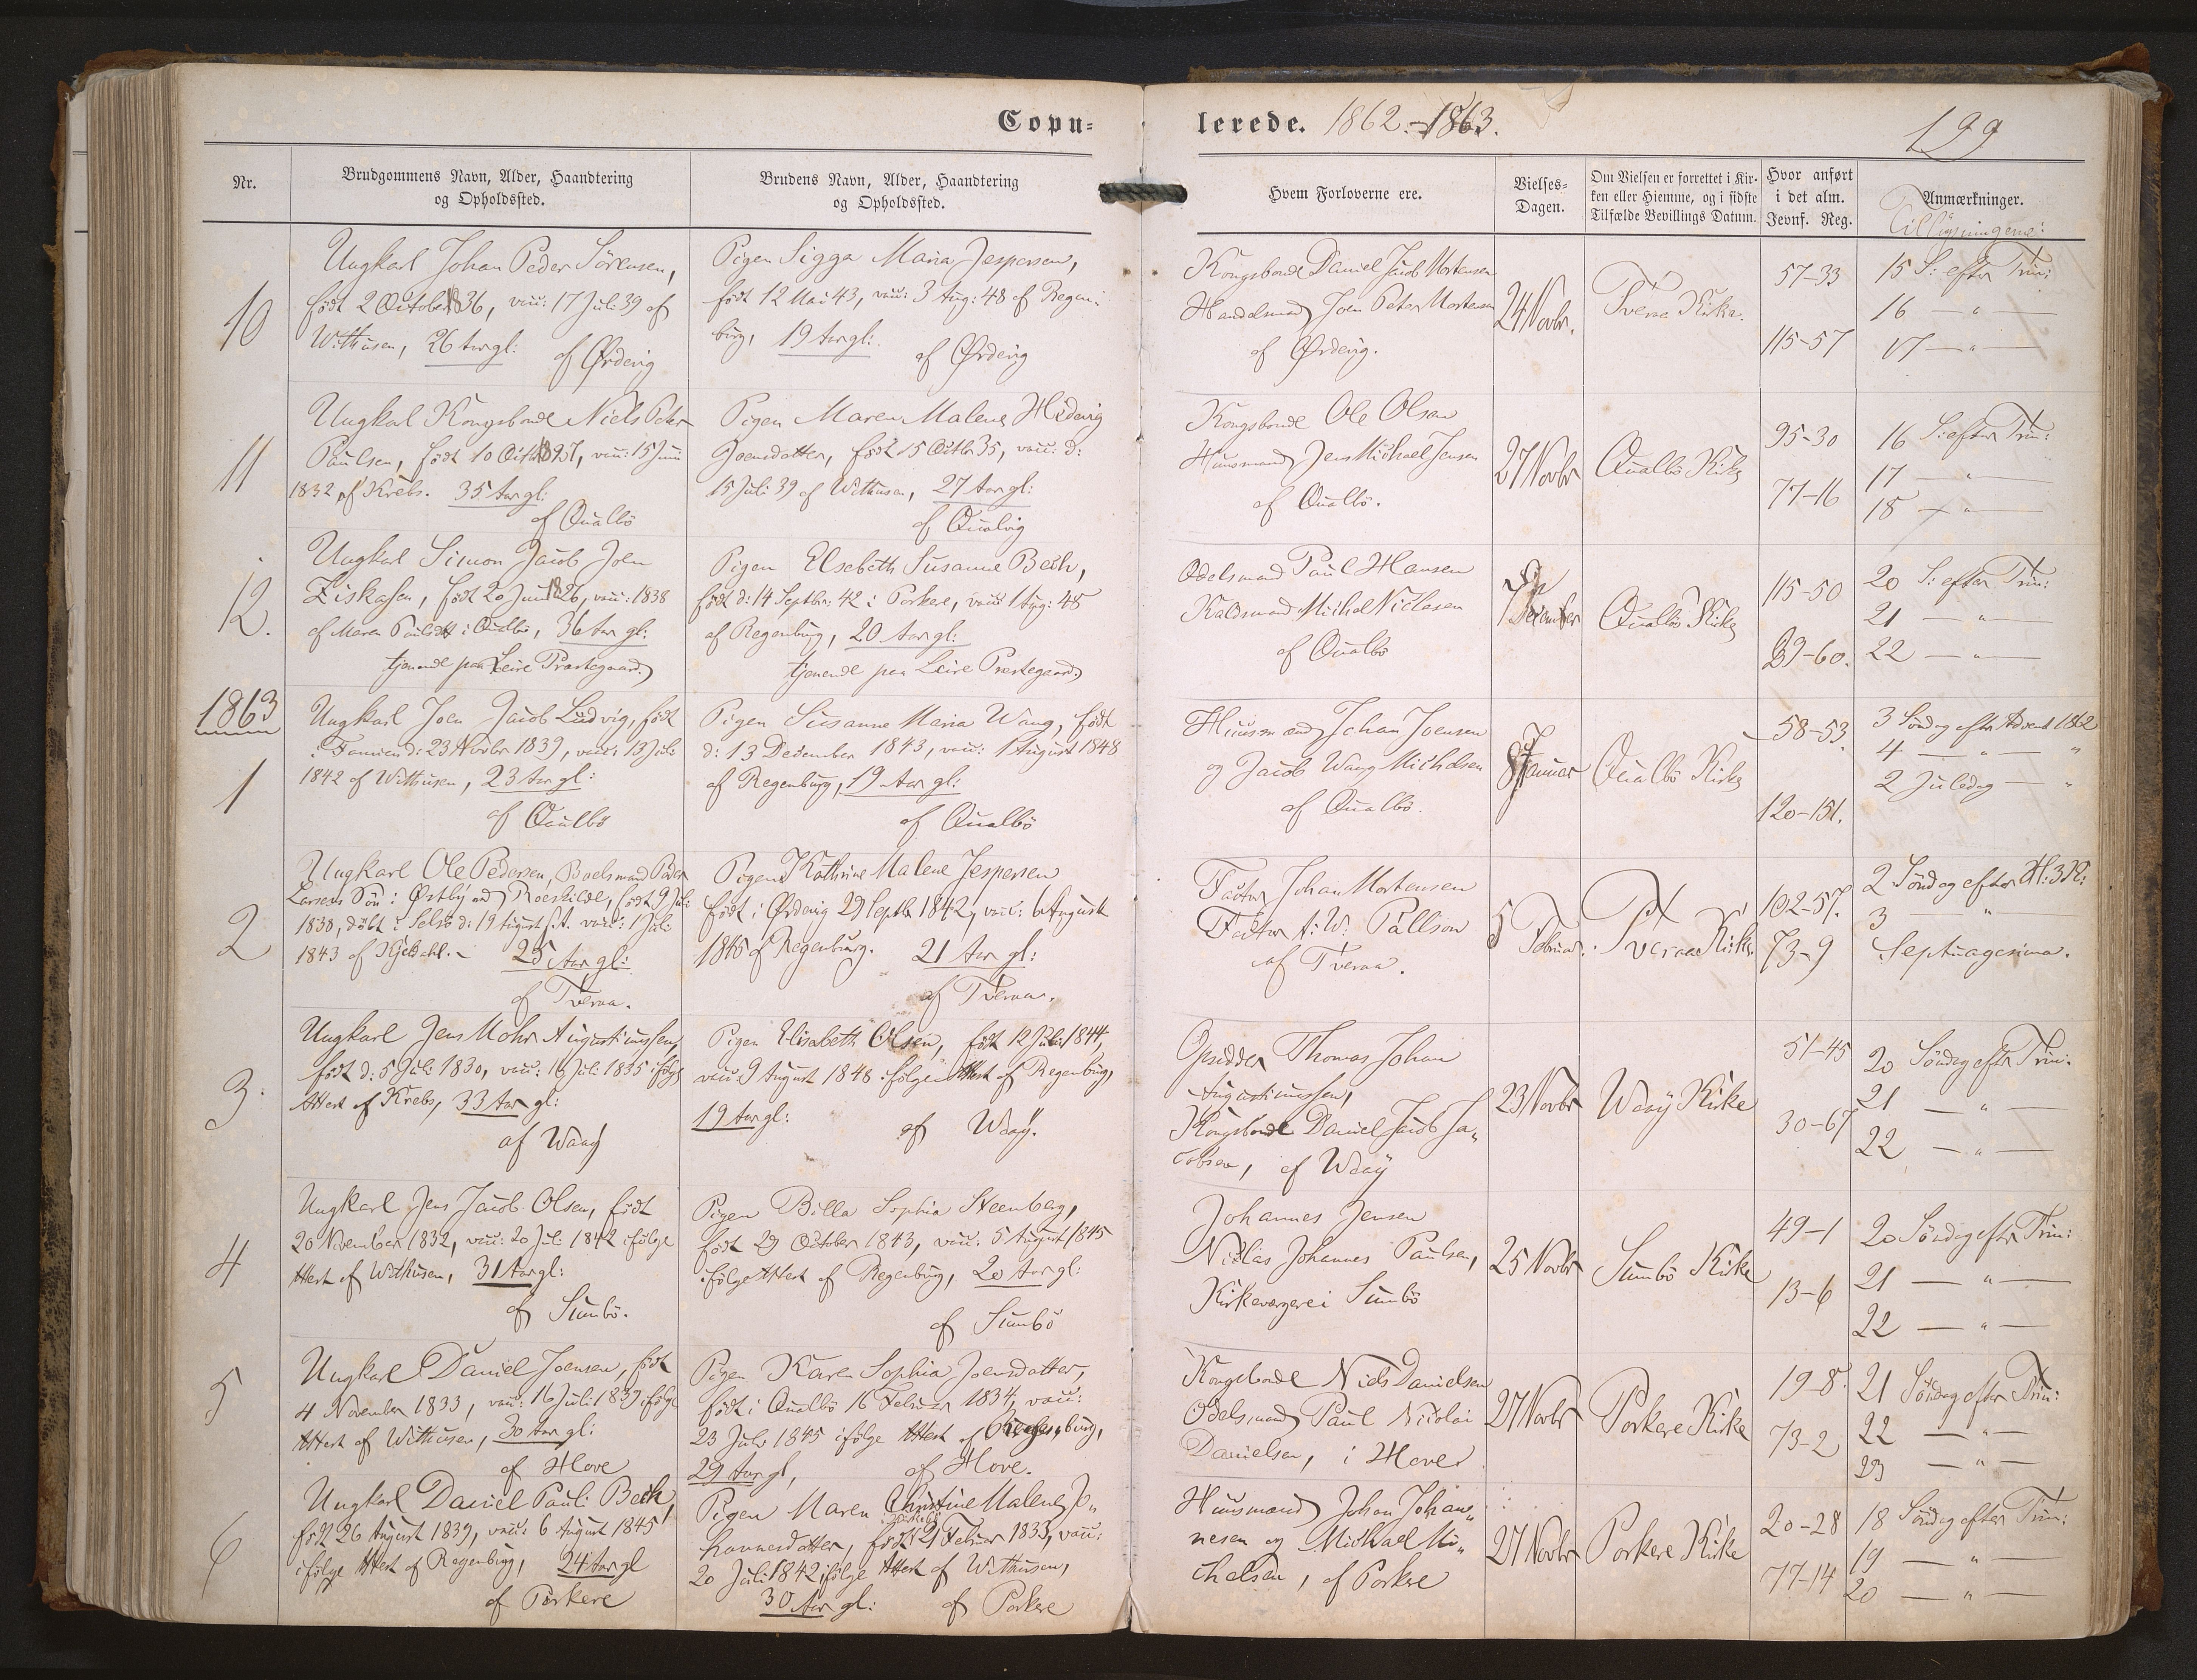 Copu-
lerede. 1862.-1863.
199
Nr.
Brudgommens Navn, Alder, Haandtering
og Opholdssted.
Brudens Navn, Alder, Haandtering
og Opholdssted.
Hvem Forloverne ere.
Vielses-
Dagen.
Om Vielsen er forrettet i Kir-
ken eller Hjemme, og i sidste
Tilfælde Bevillings Datum.
Hvor anført
i det alm.
Jevnf. Reg.
Anmærkninger.
Tillysningerne:
10
Ungkarl Johan Peder Sörensen,
født 2 October 1836, vacc: 17 Juli 39 af
Withusen, 26 Aar gl:
af Ørdevig
Pigen Sigga Maria Jespersen,
født 12 Mai 43, vacc: 3 Aug: 48 af Regen-
burg, 19 Aar gl:
af Ørdevig
Kongsbonde Daniel Jacob Mortensen
Handelsmand Joen Peter Mortensen
af Ørdevig.
24 Novbr.
Tveraa Kirke.
57-33
115-57
15 S: efter Trin:
16 — " —
17 — " —
11
Ungkarl Kongsbonde Niels Peter
Paulsen, født 10 Octbr 1827, vacc: 15 Juni
1832 af Krebs. 35 Aar gl:
af Qualbö
Pigen Maren Malene Hedevig
Joensdatter, født 15 Octbr 35, vacc: d:
15 Juli 39 af Withusen, 27 Aar gl:
af Qualvig
Kongsbonde Ole Olsen
Huusmand Jens Michael Jensen
af Qualbö.
27 Novbr
Qualbö Kirke
95-30
77-16
16 S: efter Trin:
17 — " —
18 — " —
12.
Ungkarl Simon Jacob Joen
Ziskasen, født 20 Juni 1826, vacc: 1838
af Maren Poulsdtt i Qualbö, 36 Aar gl:
tjenende paa Leire Præstegaard
Pigen Elsebeth Susanne Bech,
født d: 14 Septbr: 42 i Porkere, vacc 1 Aug: 48
af Regenburg, 20 Aar gl:
tjenende paa Leire Præstegaard
Odelsmand Paul Hansen
Michel Niclasen
af Qualbö
7 December
Qualbö Kirke
115-50
29-60.
20 S: efter Trin:
21 — " —
22 — " —
1863
1
Ungkarl Joen Jacob Ludvig, født
i Famien d: 23 Novbr 1839, vacc: 13 Juli
1842 af Withusen, 23 Aar gl:
af Qualbö
Pigen Susanne Maria Wang, født
d: 13 December 1843, vacc: 1 August 1848
af Regenburg, 19 Aar gl:
af Qualbö
Huusmand Johan Joensen
og Jacob Wang Michelsen
af Qualbö.
Januar
Qualbö Kirke
58-53.
120-151.
3 Söndag efter Advent 1862
4 — " — "
2 Juledag — "
2
Ungkarl Ole Pedersen, Boelsmand Peder
Larsens Sön i Østby ved Roeskilde, født 9 Juli
1838, döbt i Selsö d: 19 August s. A. vacc: 1 Juli
1843 af Kjeldahl. - 25 Aar gl:
af Tveraa.
Pigen Kathrine Malene Jespersen
født i Ørdevig 29 Septbr 1842, vacc: 6 August
1845 af Regenburg. 21 Aar gl:
af Tveraa.
Factor Johan Mortensen
Factor F: W: Pallson
af Tveraa.
5 Februar.
Tveraa Kirke
102-57.
73-9
2 Söndag efter H: 3 K:
3 — " —
Septuagesima.
3
Ungkarl Jens Mohr Augustinussen,
født d: 5 Juli 1830, vacc: 16 Juli 1835 ifölge
Attest af Krebs, 33 Aar gl:
af Waag
Pigen Elisabeth Olsen, født 12 Juli 1844,
vacc: 9 August 1848 ifölge Attest af Regenburg,
19 Aar gl:
af Waag.
Opsidder Thomas Johan
Augustinussen,
Kongsbonde Daniel Jacob Ja-
cobsen, af Waag
23 Novbr
Waag Kirke
51-45
30-67
20 Söndag efter Trin:
21 — " —
22 — " —
4
Ungkarl Jens Jacob Olsen, født
20 November 1832, vacc: 20 Juli 1842 ifölge
Attest af Withusen, 31 Aar gl:
af Sumbö.
Pigen Billa Sophia Steenberg,
født 29 October 1843, vacc: 5 August 1845
ifölge Attest af Regenburg, 20 Aar gl:
af Sumbö
Johannes Jensen
Niclas Johannes Paulsen,
Kirkeværgere i Sumbö
25 Novbr
Sumbö Kirke
49-1
13-6
20 Söndag efter Trin:
21 — " —
22 — " —
5
Ungkarl Daniel Joensen, født
4 November 1833, vacc: 16 Juli 1839 ifölge
Attest af Withusen, 30 Aar gl:
af Hove
Pigen Karen Sophia Joensdatter,
født i Qualbö 16 Februar 1834, vacc:
23 Juli 1845 ifölge Attest af Regenburg,
29 Aar gl,
af Hove.
Kongsbonde Niels Danielsen
Odelsmand Paul Nicolai
Danielsen, i Hove
27 Novbr
Porkere Kirke
19-8.
73-2
21 Söndag efter Trin:
22 — " —
23 — " —
6
Ungkarl Daniel Pauli Bech,
født 26 August 1839, vacc: 6 August 1845
ifölge Attest af Regenburg, 24 Aar gl
af Porkere
Pigen Maren Christine Malene Jo-
hannesdatter, født 21 Februar 1833, vacc:
20 Juli 1842 ifölge Attest af Withusen,
30 Aar gl: af Porkere
Huusmand Johan Johan-
nesen og Michael Mi-
chelsen, af Porkere
27 Novbr
Porkere Kirke
20-28
77-14
18 Söndag efter Trin:
19 — " —
20 — " —